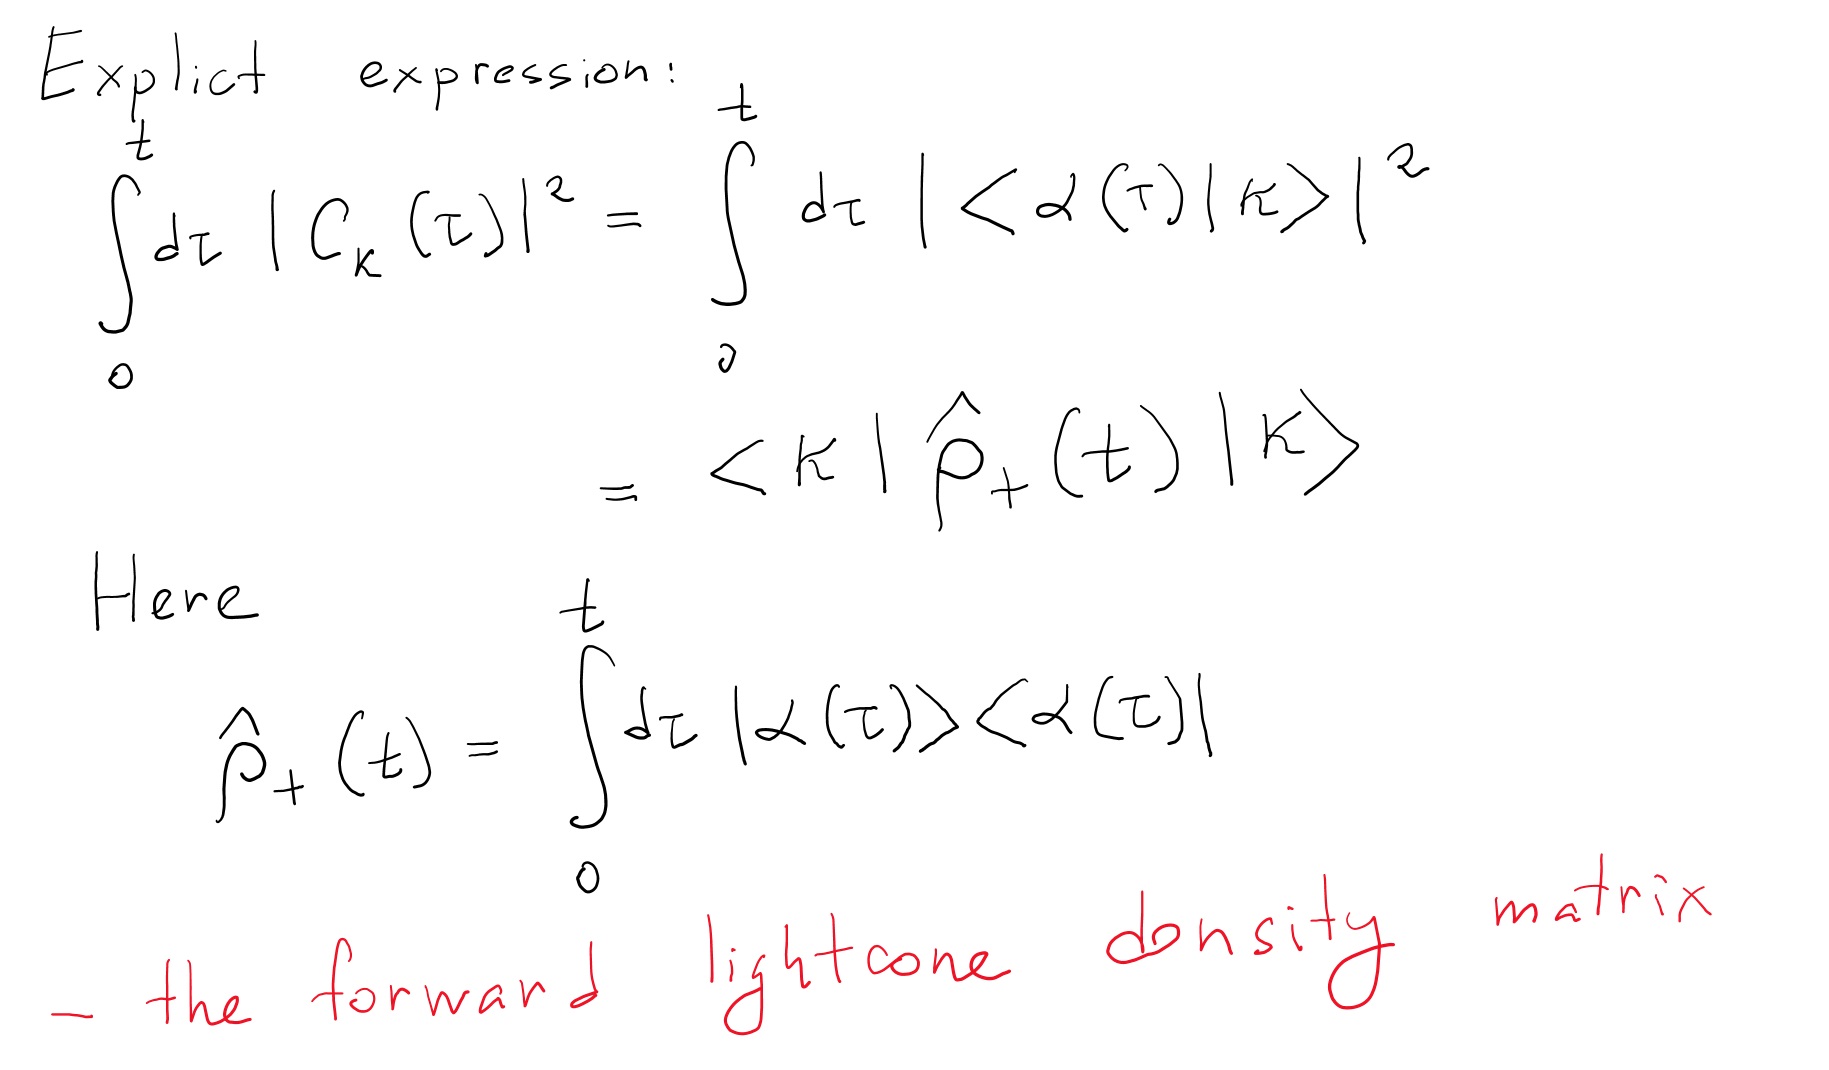 Explict expression:
∫₀ᵗ dτ |C_k(τ)|² = ∫₀ᵗ dτ |<α(τ)|k>|²
= <k|ρ̂₊(t)|k>
Here
ρ̂₊(t) = ∫₀ᵗ dτ |α(τ)><α(τ)|
- the forward lightcone density matrix